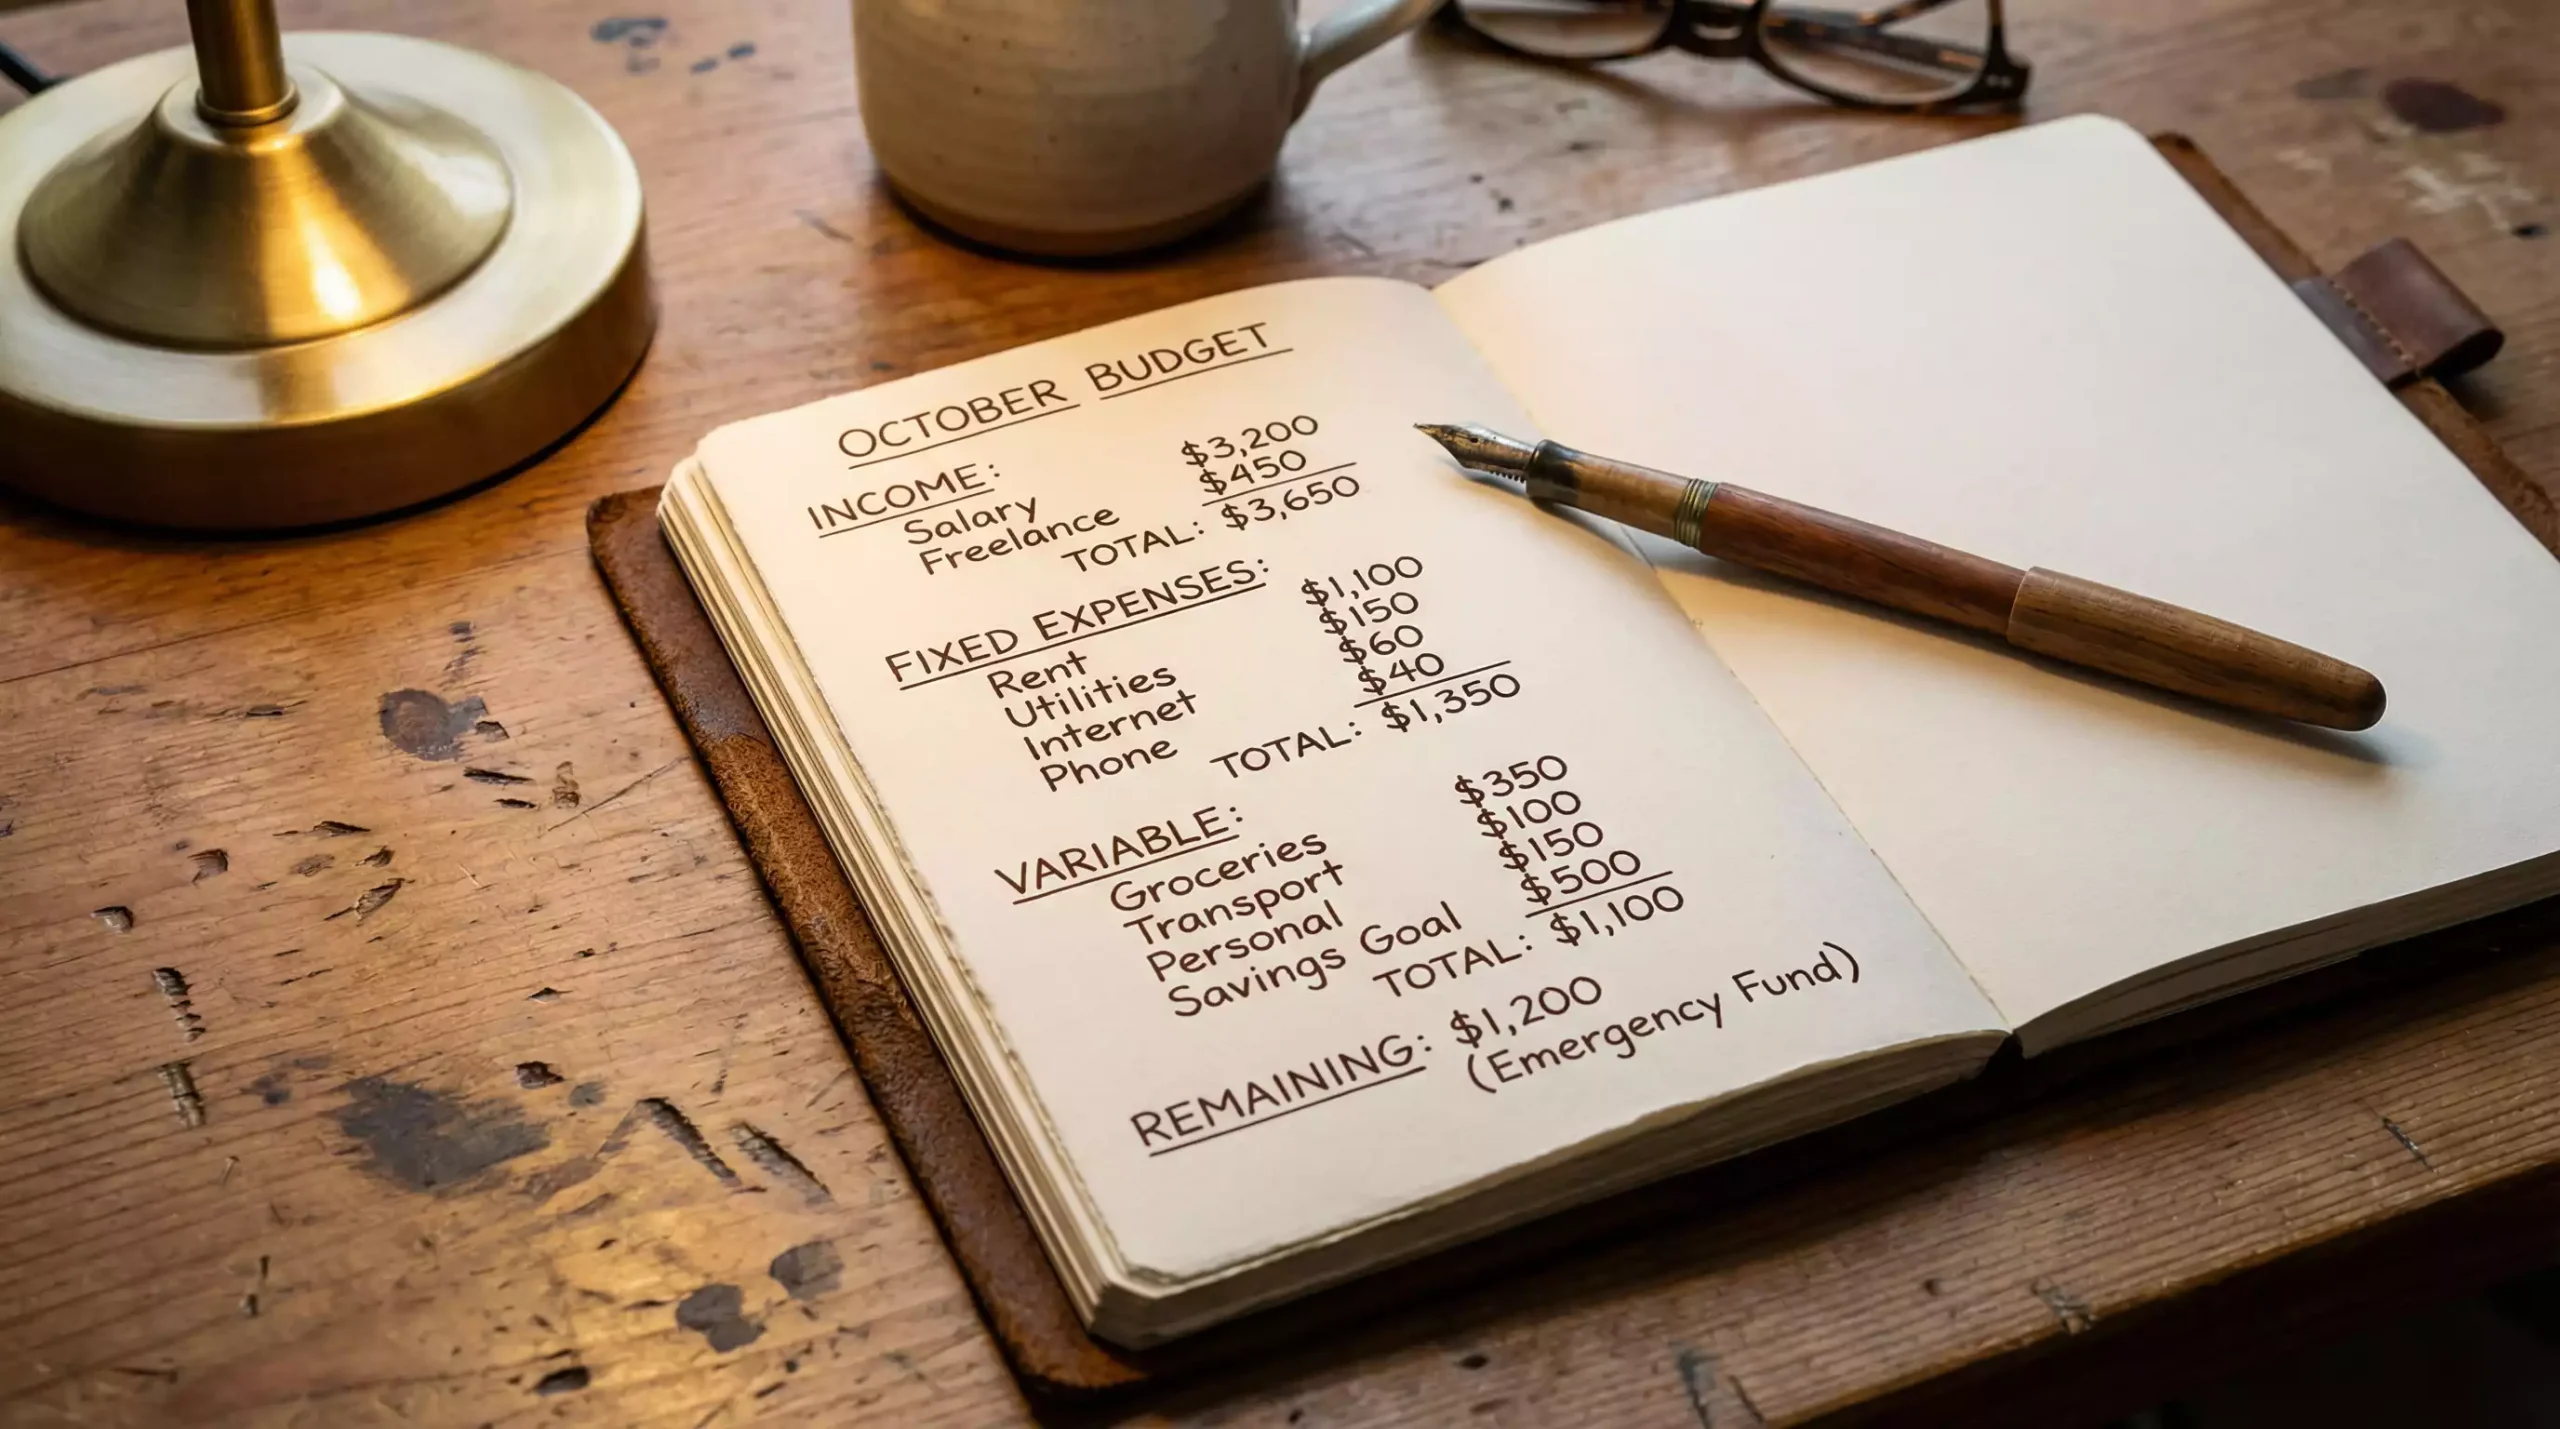 OCTOBER BUDGET
INCOME:
Salary $3,200
Freelance $450
TOTAL: $3,650
FIXED EXPENSES:
Rent $1,100
Utilities $150
Internet $60
Phone $40
TOTAL: $1,350
VARIABLE:
Groceries $350
Transport $100
Personal $150
Savings Goal $500
TOTAL: $1,100
REMAINING: $1,200
(Emergency Fund)